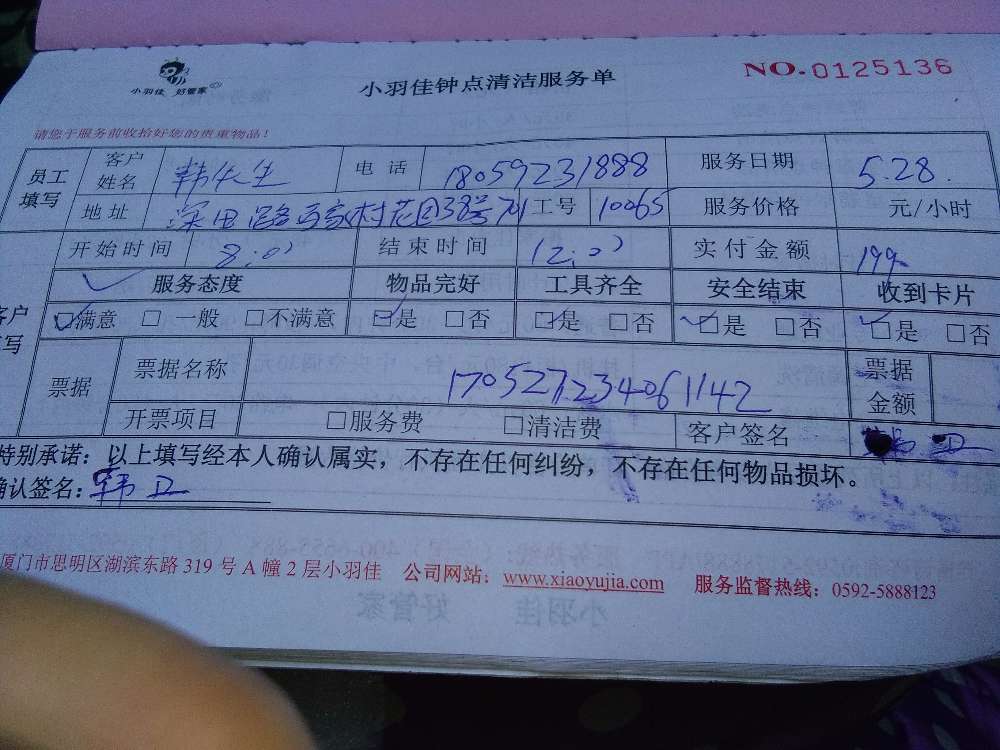 小羽佳 好管家
小羽佳钟点清洁服务单
NO.0125136
请您于服务前收拾好您的贵重物品！
员工填写 客户姓名 韩先生 电话 18059231888 服务日期 5.28.
地址 深田路 村花园38号701 工号 10065 服务价格 元/小时
开始时间 8:00 结束时间 12:00 实付金额 199
服务态度 物品完好 工具齐全 安全结束 收到卡片
☑满意 □一般 □不满意 ☑是 □否 ☑是 □否 ☑是 □否 ☑是 □否
票据 票据名称 170527234061142 票据金额
开票项目 □服务费 □清洁费 客户签名
特别承诺：以上填写经本人确认属实，不存在任何纠纷，不存在任何物品损坏。
确认签名：韩卫
厦门市思明区湖滨东路 319 号 A 幢 2 层小羽佳 公司网站：www.xiaoyujia.com 服务监督热线：0592-5888123